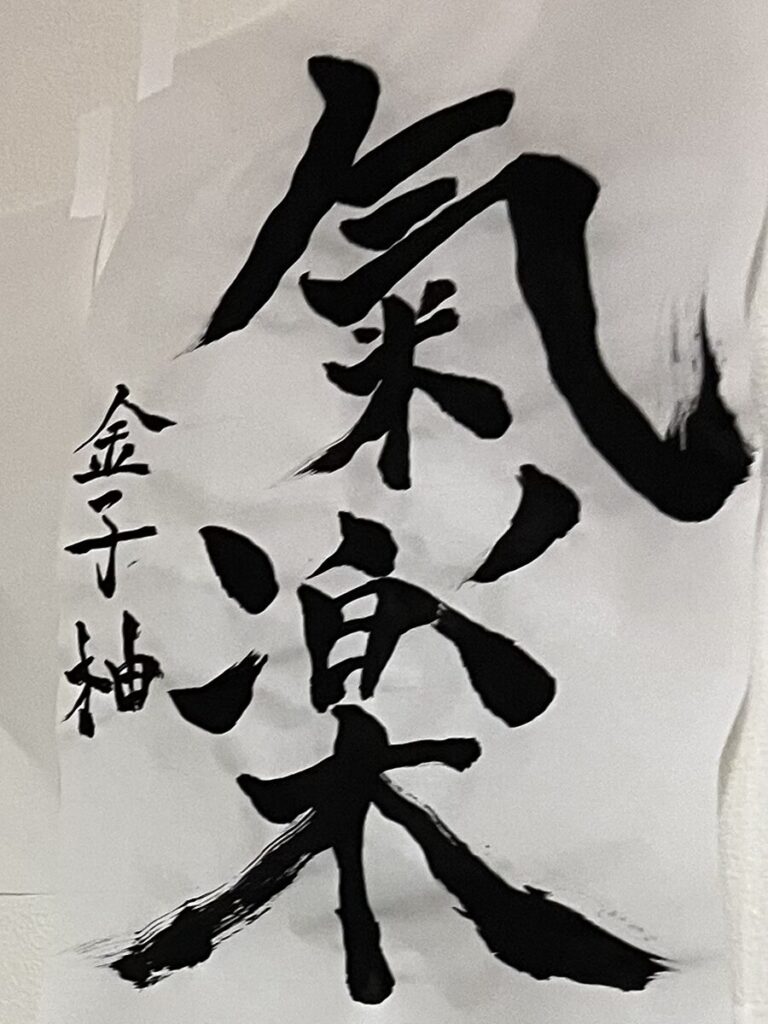 氣楽
金子柚